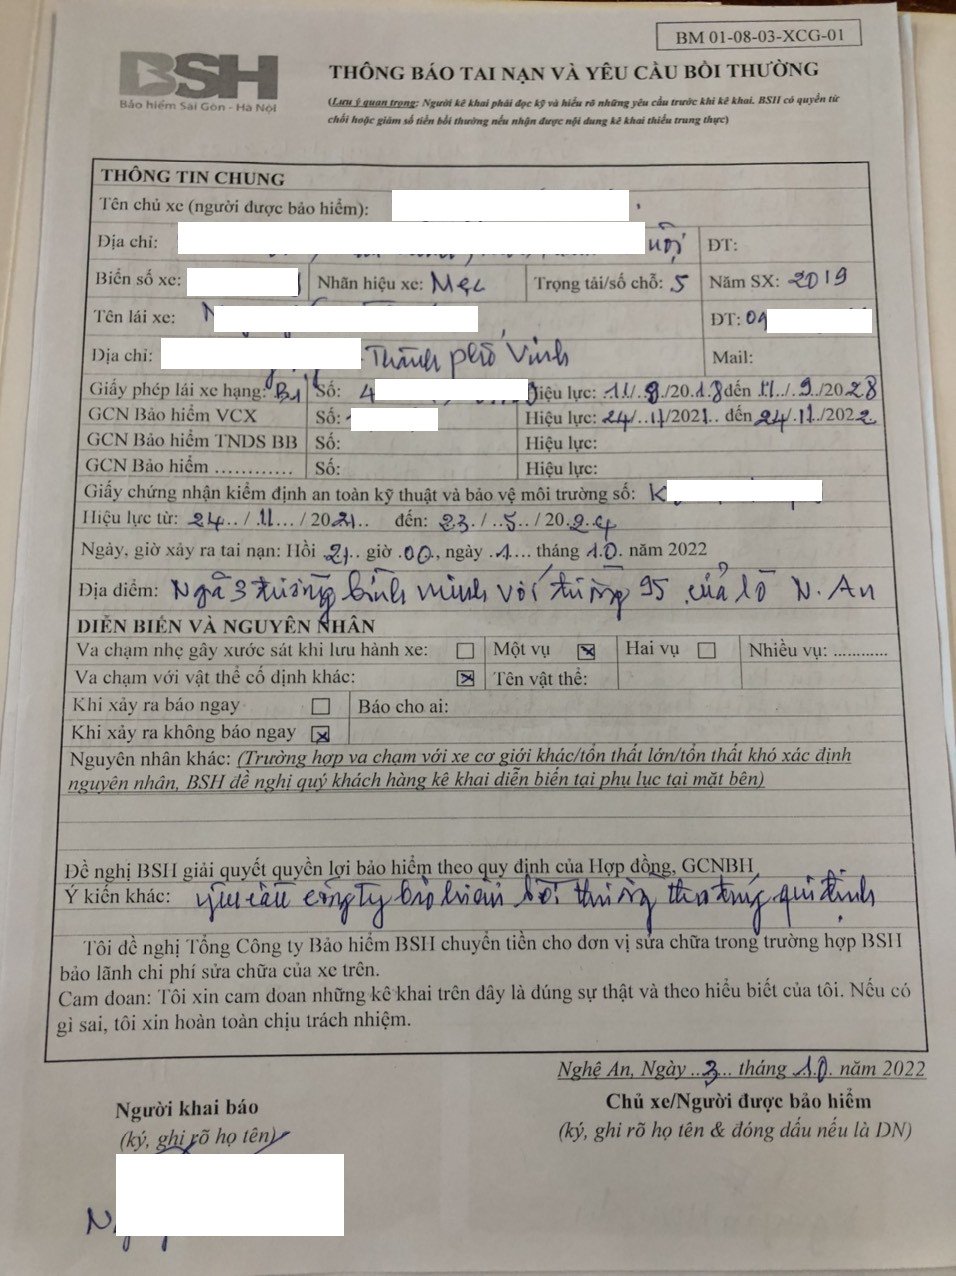 BM 01-08-03-XCG-01
BSH
Bảo hiểm Sài Gòn - Hà Nội
THÔNG BÁO TAI NẠN VÀ YÊU CẦU BỒI THƯỜNG
(Lưu ý quan trọng: Người kê khai phải đọc kỹ và hiểu rõ những yêu cầu trước khi kê khai. BSH có quyền từ
chối hoặc giảm số tiền bồi thường nếu nhận được nội dung kê khai thiếu trung thực)
THÔNG TIN CHUNG
Tên chủ xe (người được bảo hiểm):
Địa chỉ: ĐT:
Biển số xe: Nhãn hiệu xe: Mec Trọng tải/số chỗ: 5 Năm SX: 2019
Tên lái xe: N ĐT: 09
Địa chỉ: Thành phố Vinh Mail:
Giấy phép lái xe hạng: B1 Số: 4 Hiệu lực: 11/9/2018 đến 11/9/2028
GCN Bảo hiểm VCX Số: Hiệu lực: 24/11/2021.. đến 24/11/2022
GCN Bảo hiểm TNDS BB Số: Hiệu lực:
GCN Bảo hiểm ............ Số: Hiệu lực:
Giấy chứng nhận kiểm định an toàn kỹ thuật và bảo vệ môi trường số: K
Hiệu lực từ: 24../ 11.../ 2021.. đến: 23../..5../ 2024
Ngày, giờ xảy ra tai nạn: Hồi 21.. giờ .00, ngày .1... tháng 10. năm 2022
Địa điểm: Ngã 3 đường bình minh với đường 95 cửa lò N. An
DIỄN BIẾN VÀ NGUYÊN NHÂN
Va chạm nhẹ gây xước sát khi lưu hành xe: Một vụ Hai vụ Nhiều vụ: ............
Va chạm với vật thể cố định khác: Tên vật thể:
Khi xảy ra báo ngay Báo cho ai:
Khi xảy ra không báo ngay
Nguyên nhân khác: (Trường hợp va chạm với xe cơ giới khác/tổn thất lớn/tổn thất khó xác định
nguyên nhân, BSH đề nghị quý khách hàng kê khai diễn biến tại phụ lục tại mặt bên)
Đề nghị BSH giải quyết quyền lợi bảo hiểm theo quy định của Hợp đồng, GCNBH
Ý kiến khác: yêu cầu công ty bảo hiểm bồi thường theo đúng qui định
Tôi đề nghị Tổng Công ty Bảo hiểm BSH chuyển tiền cho đơn vị sửa chữa trong trường hợp BSH
bảo lãnh chi phí sửa chữa của xe trên.
Cam đoan: Tôi xin cam đoan những kê khai trên đây là đúng sự thật và theo hiểu biết của tôi. Nếu có
gì sai, tôi xin hoàn toàn chịu trách nhiệm.
Nghệ An, Ngày ..3... tháng .10. năm 2022
Người khai báo
(ký, ghi rõ họ tên)
Chủ xe/Người được bảo hiểm
(ký, ghi rõ họ tên & đóng dấu nếu là DN)